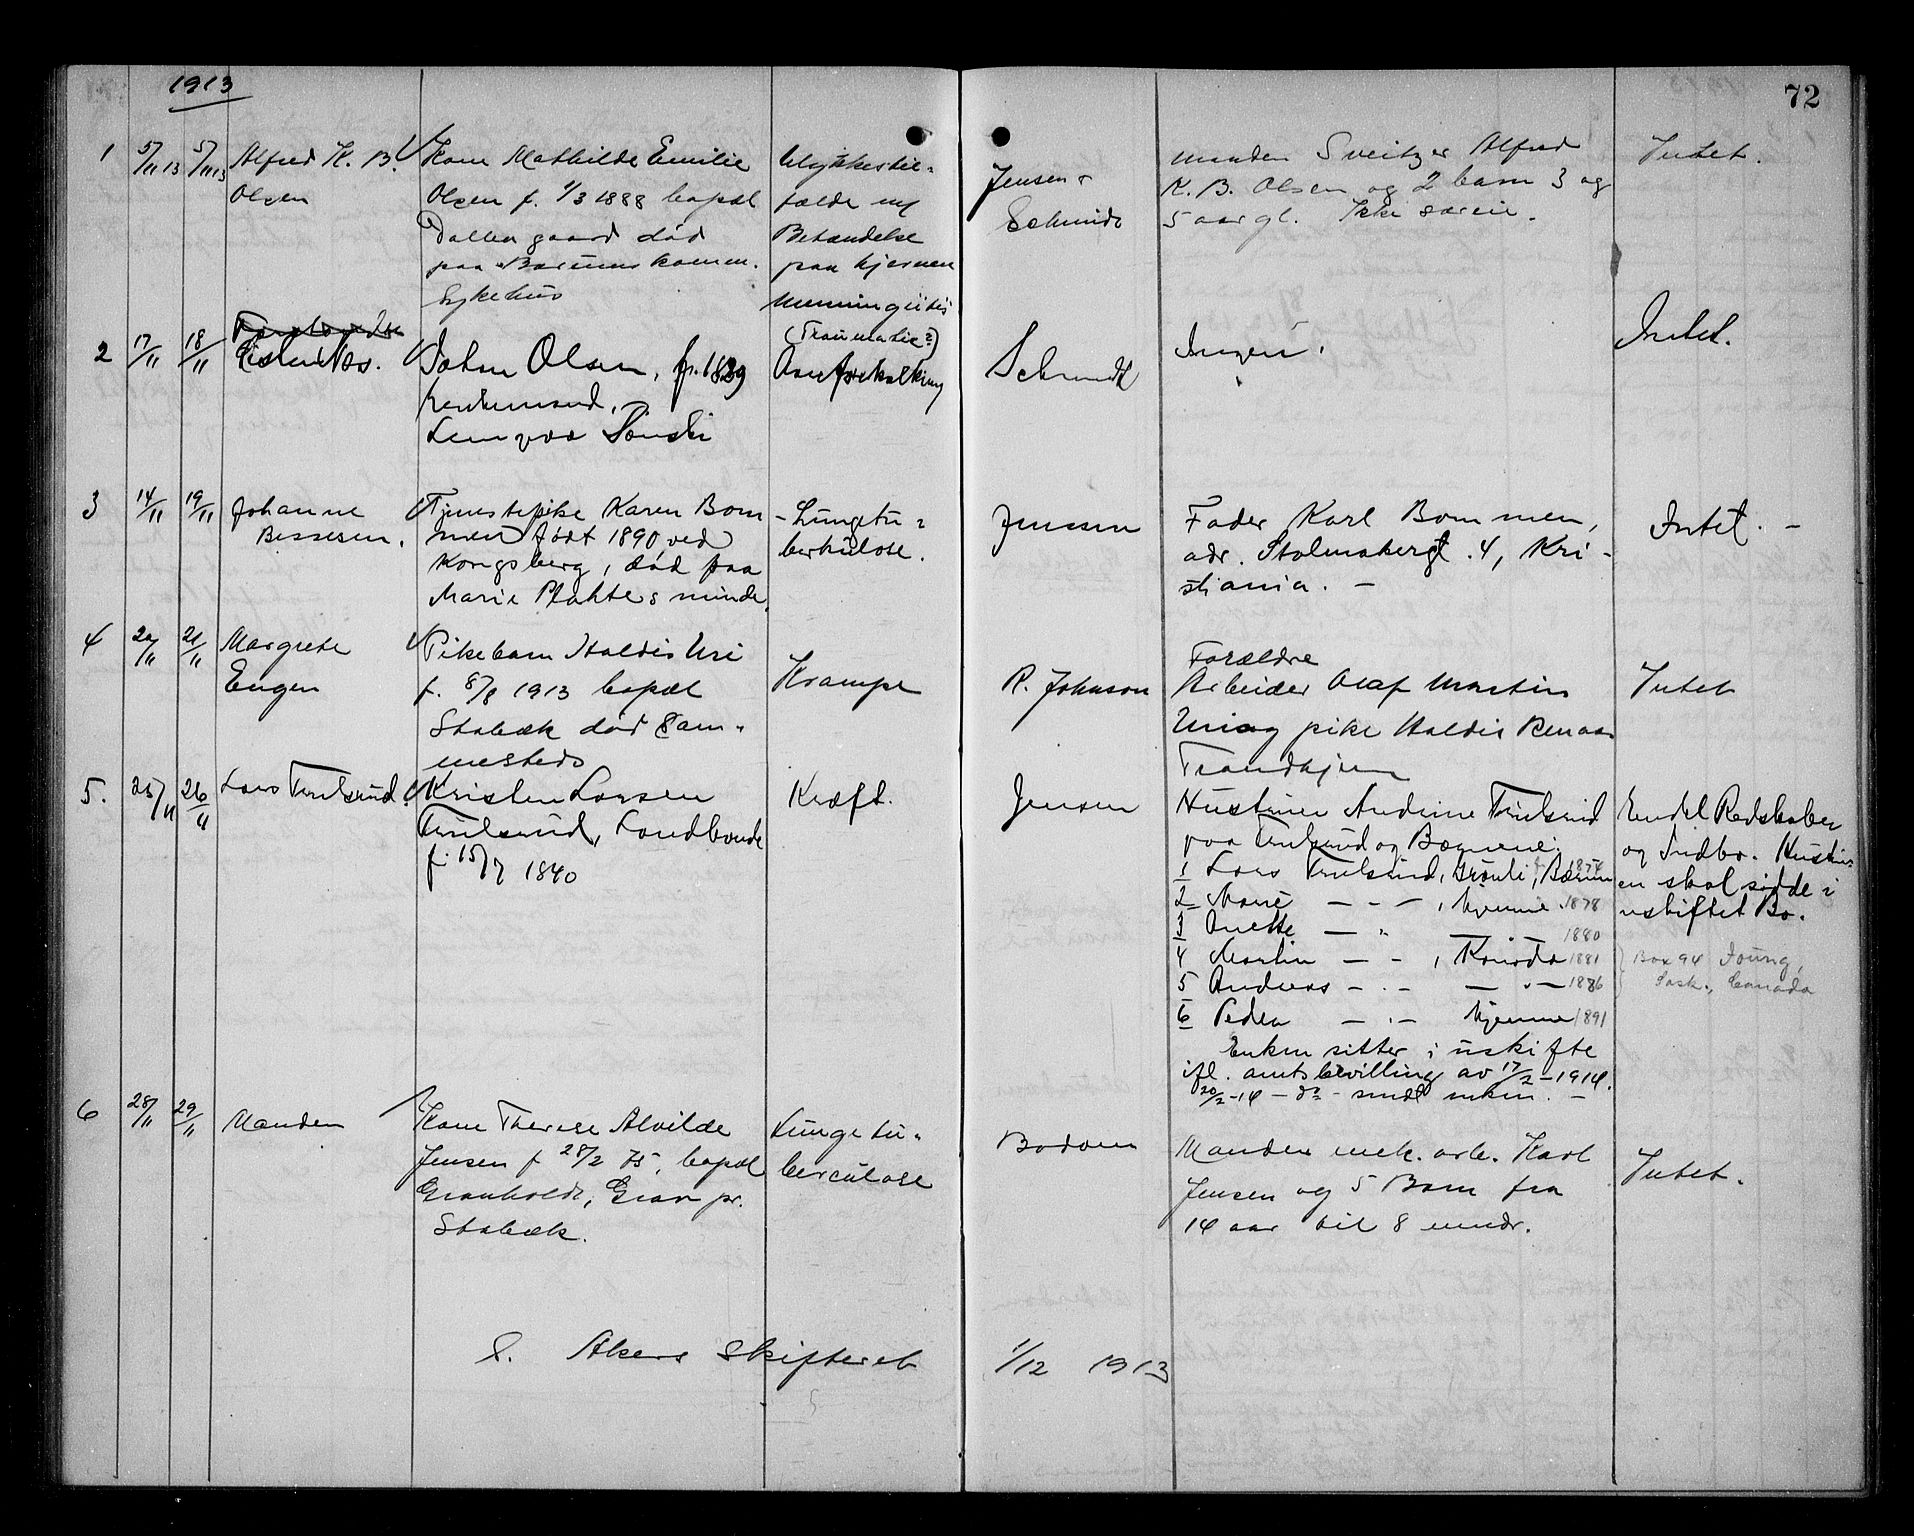 1913
72
1 5/11 13 5/11 13 Alfred K. B. Olsen
Kone Mathilde Emilie
Olsen f. 1/3 1888 bopæl
gaard død
paa Bærums komm.
Sykehus
Ulykkestil-
fælde
Betændelse
paa hjernen
(Traumatic?)
Jensen &
Schmidt
manden Sveitzer Alfred
K. B. Olsen og 2 barn 3 og
5 aar gl. Ikke særeie.
Intet.
2 17/11 18/11
Johan Olsen, f. 1829
Aareforkalkning
Schmidt
Ingen.
Intet.
3 14/11 19/11 Johanne
Bessesen.
Tjenestepike Karen Bom
men født 1890 ved
Kongsberg, død paa
Marie Plahtes minde.
Lungetu-
berkulose.
Jensen
Fader Karl Bommen,
adr. Stolmakergt. 4, Kri-
stiania. -
Intet. -
4 20/11 21/11 Margrete
Engen
Pikebarn Haldis Uri
f. 8/8 1913 bopæl
Stabæk død sam-
mesteds
Krampe
R. Johnson
Forældre
Arbeider Olaf Martin
Uri og pike Haldis
Trondhjem
Intet
5. 25/11 26/11 Lars Trulsrud.
Kristen Larsen
Trulsrud, Landbonde
f. 15/7 1840
Kræft.
Jensen
Hustruen Andrine Trulsrud
paa Trulsrud og Børnene:
1 Lars Trulsrud, Grønli, Bærum 1874
2 Marie - " - , hjemme 1878
3 Anette - " - 1880
4 Martin - " - , Kanada 1881
5 Andreas - " - - " - 1886
6 Peder - " - hjemme 1891
Enken sitter i uskifte
ifl. amtsbevilling av 17/2 - 1914.
20/2 - 14 - do - sendt enken. -
Endel Redskaber
og Indbo. Hustru-
en skal sidde i
uskiftet Bo.
Box 94 Young,
Sask., Canada
6 28/11 29/11 Manden
Kone Therese Alvilde
Jensen f 28/2 75, bopæl
Granholdt, Grav pr.
Stabæk.
Lungetu-
berculose
Bodom
Manden mek. arb. Karl
Jensen og 5 Barn fra
14 aar til 8 mndr.
Intet.
S. Akers Skifteret 1/12 1913